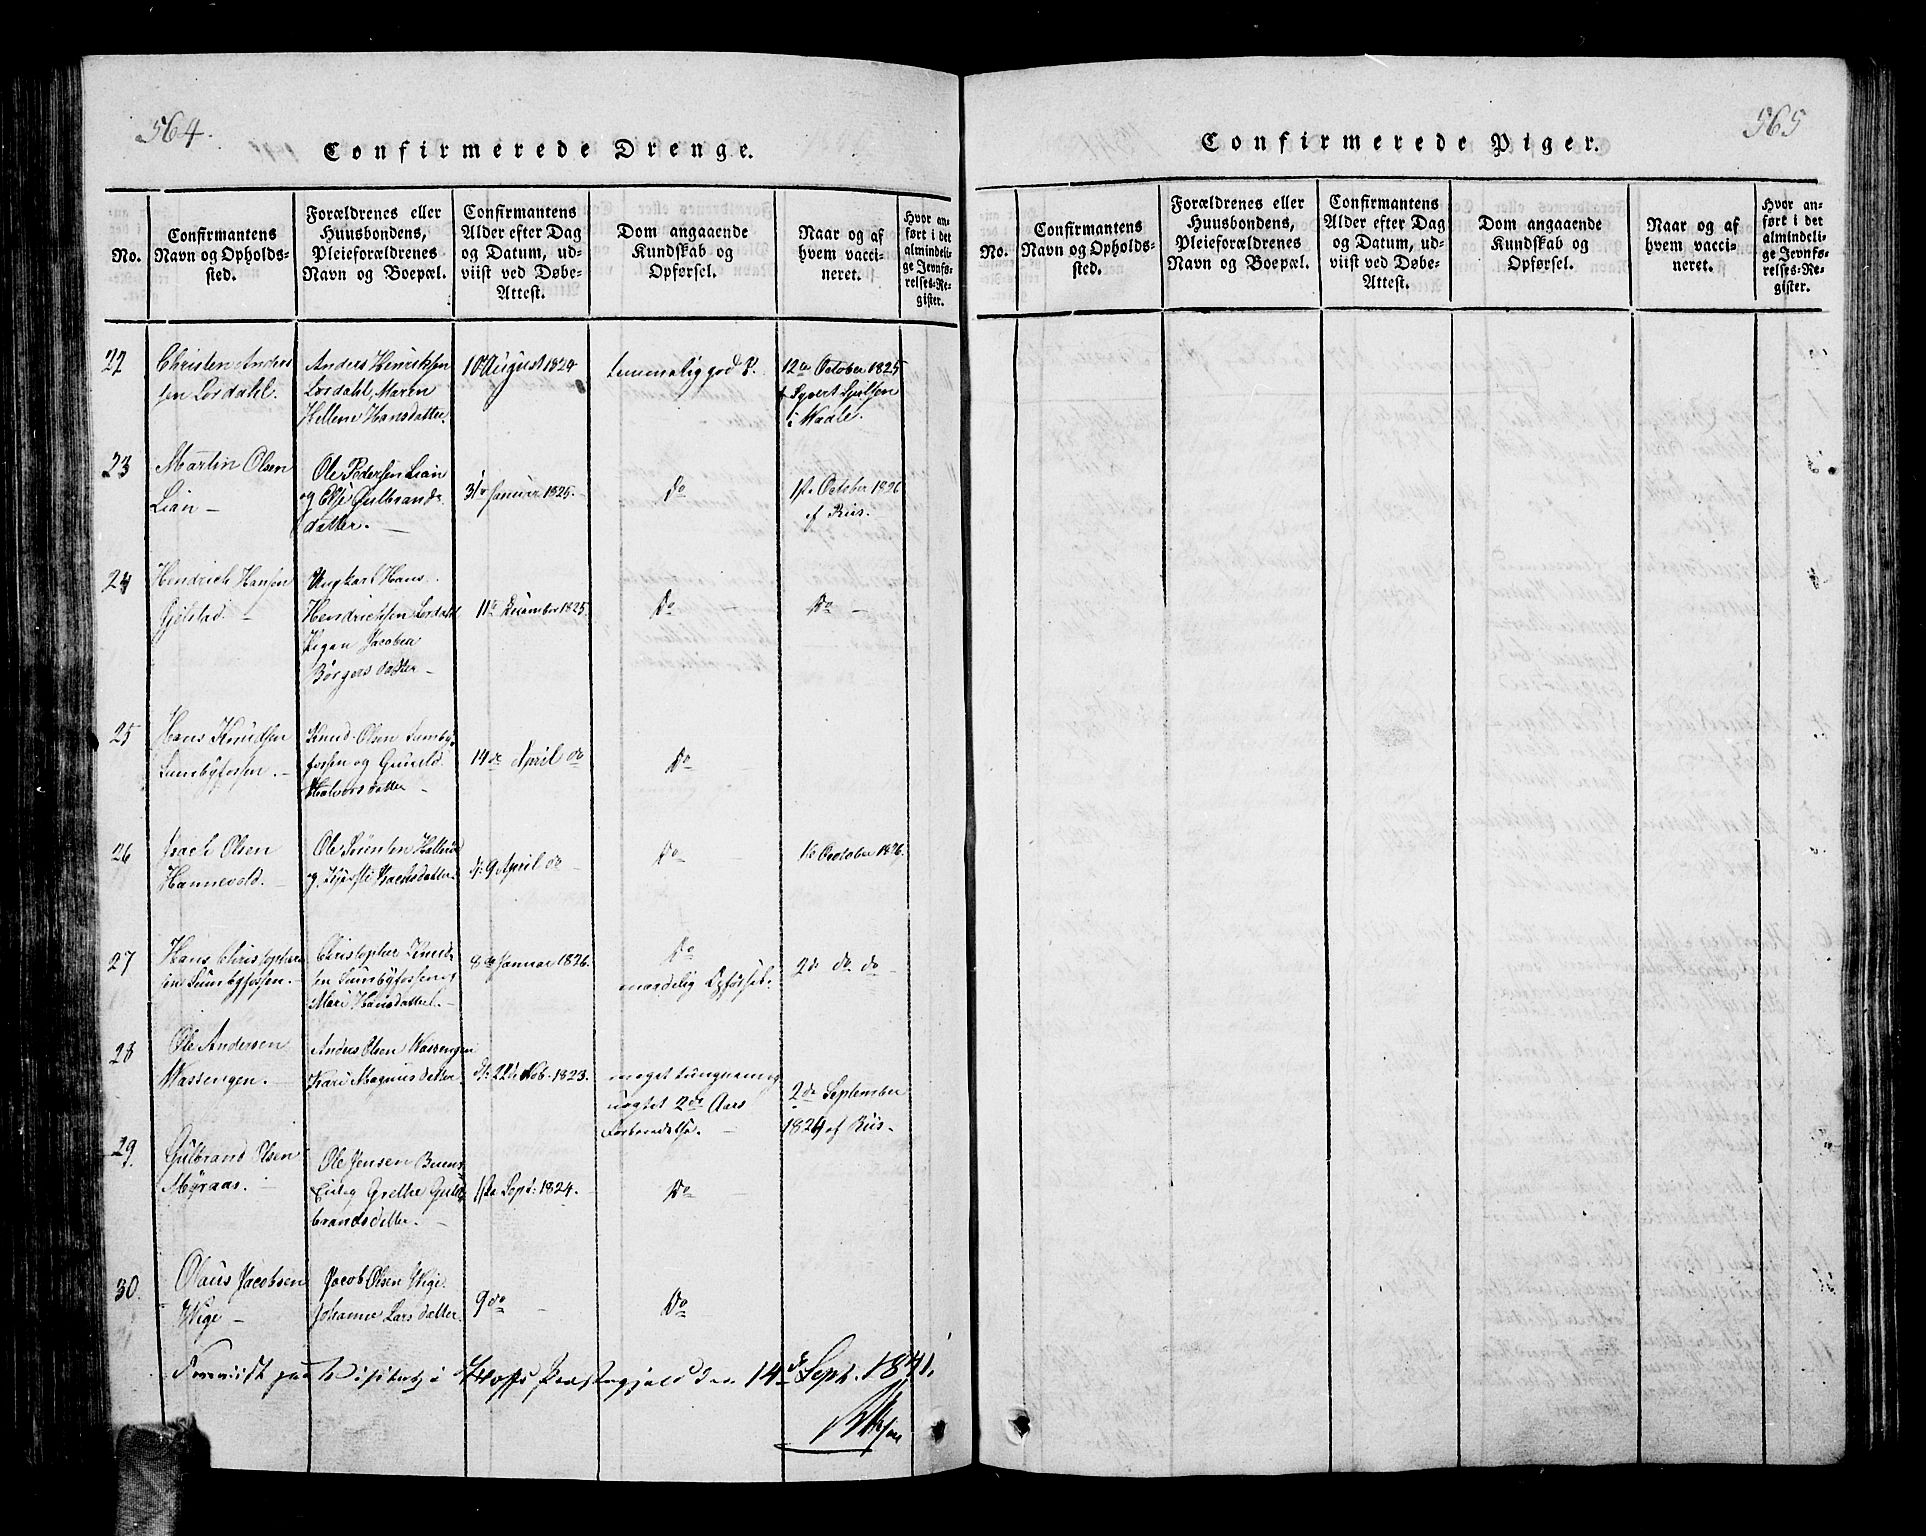 564.
Confirmerede Drenge.
No.
Confirmantens
Navn og Opholds-
sted.
Forældrenes eller
Huusbondens,
Pleieforældrenes
Navn og Boepæl.
Confirmantens
Alder efter Dag
og Datum, ud-
viist ved Døbe-
Attest.
Dom angaaende
Kundskab og
Opførsel.
Naar og af
hvem vacci-
neret.
Hvor an-
ført i det
almindeli-
ge Jevnfø-
relses-Re-
gister.
22
Christen Anders
sen Lordahl.
Anders Henriksen
Lordahl, Maren
Hellene Hansdatter.
10 August 1824
temmelig god
12te October 1825
i Waale.
23
Martin Olsen
Lian —
Ole Pedersen Lian
og Else Gulbrands
datter. —
31te Januar 1825.
Do
October 1826
af Riis.
24
Hendrich Hansen
Gjølstad. —
Ungkarl Hans
Hendrichsen Lordahl
Pigen Jacobea
Børgersdatter —
11te December 1825.
Do
Do —
25
Hans Knudsen
Sundbyfossen. —
Knud Olsen Sundby
fossen og Gunild
Halvorsdatter —
14de April do
Do
26
Isach Olsen
Hannevold. —
Ole
og Kjersti Isachsdatter.
d: 9 April do —
Do —
October 1826.
27
Hans Christophers
sen Sundbyfossen. —
Christopher Knud
sen Sundbyfossen og
Mari Hansdatter. —
8de Januar 1826.
Do
maadelig Opførsel.
2d do. do —
28
Ole Andersen
Wassengen. —
Anders Olsen Wassengen
Kari Magnusdatter
Nob. 1823.
meget tungnæmmig
uagtet 2de Aars
Forberedelse. —
2de September
1824 af Riis —
29
Gulbrand Olsen
Myraas. —
Ole Jensen
Grethe Guld
brandsdatter. —
Sept: 1824. —
Do
30.
Olaus Jacobsen
Wige —
Jacob Olsen Wige.
Johanne Larsdatter.
9 do —
Do
Foreviist paa Visitats i Hoffs Præstegjeld den 14de Sept. 1841.
565
Confirmerede Piger.
No.
Confirmantens
Navn og Opholds-
sted.
Forældrenes eller
Huusbondens,
Pleieforældrenes
Navn og Boepæl.
Confirmantens
Alder efter Dag
og Datum, ud-
viist ved Døbe-
Attest.
Dom angaaende
Kundskab og
Opførsel.
Naar og af
hvem vacci-
neret.
Hvor an-
ført i det
almindeli-
ge Jevnfø-
relses-Re-
gister.